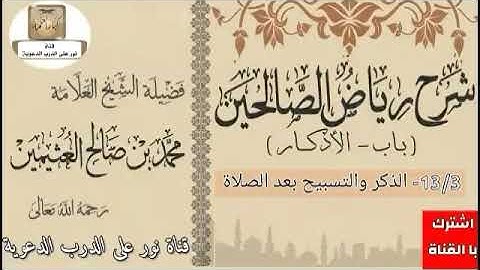 شرح رياض الصالحين
(باب - الأذكار)
13/3- الذكر والتسبيح بعد الصلاة
فضيلة الشيخ العلامة
محمد بن صالح العثيمين
رحمه الله تعالى
قناة نور على الدرب الدعوية
اشترك
با القناة
قناة
نور على الدرب الدعوية